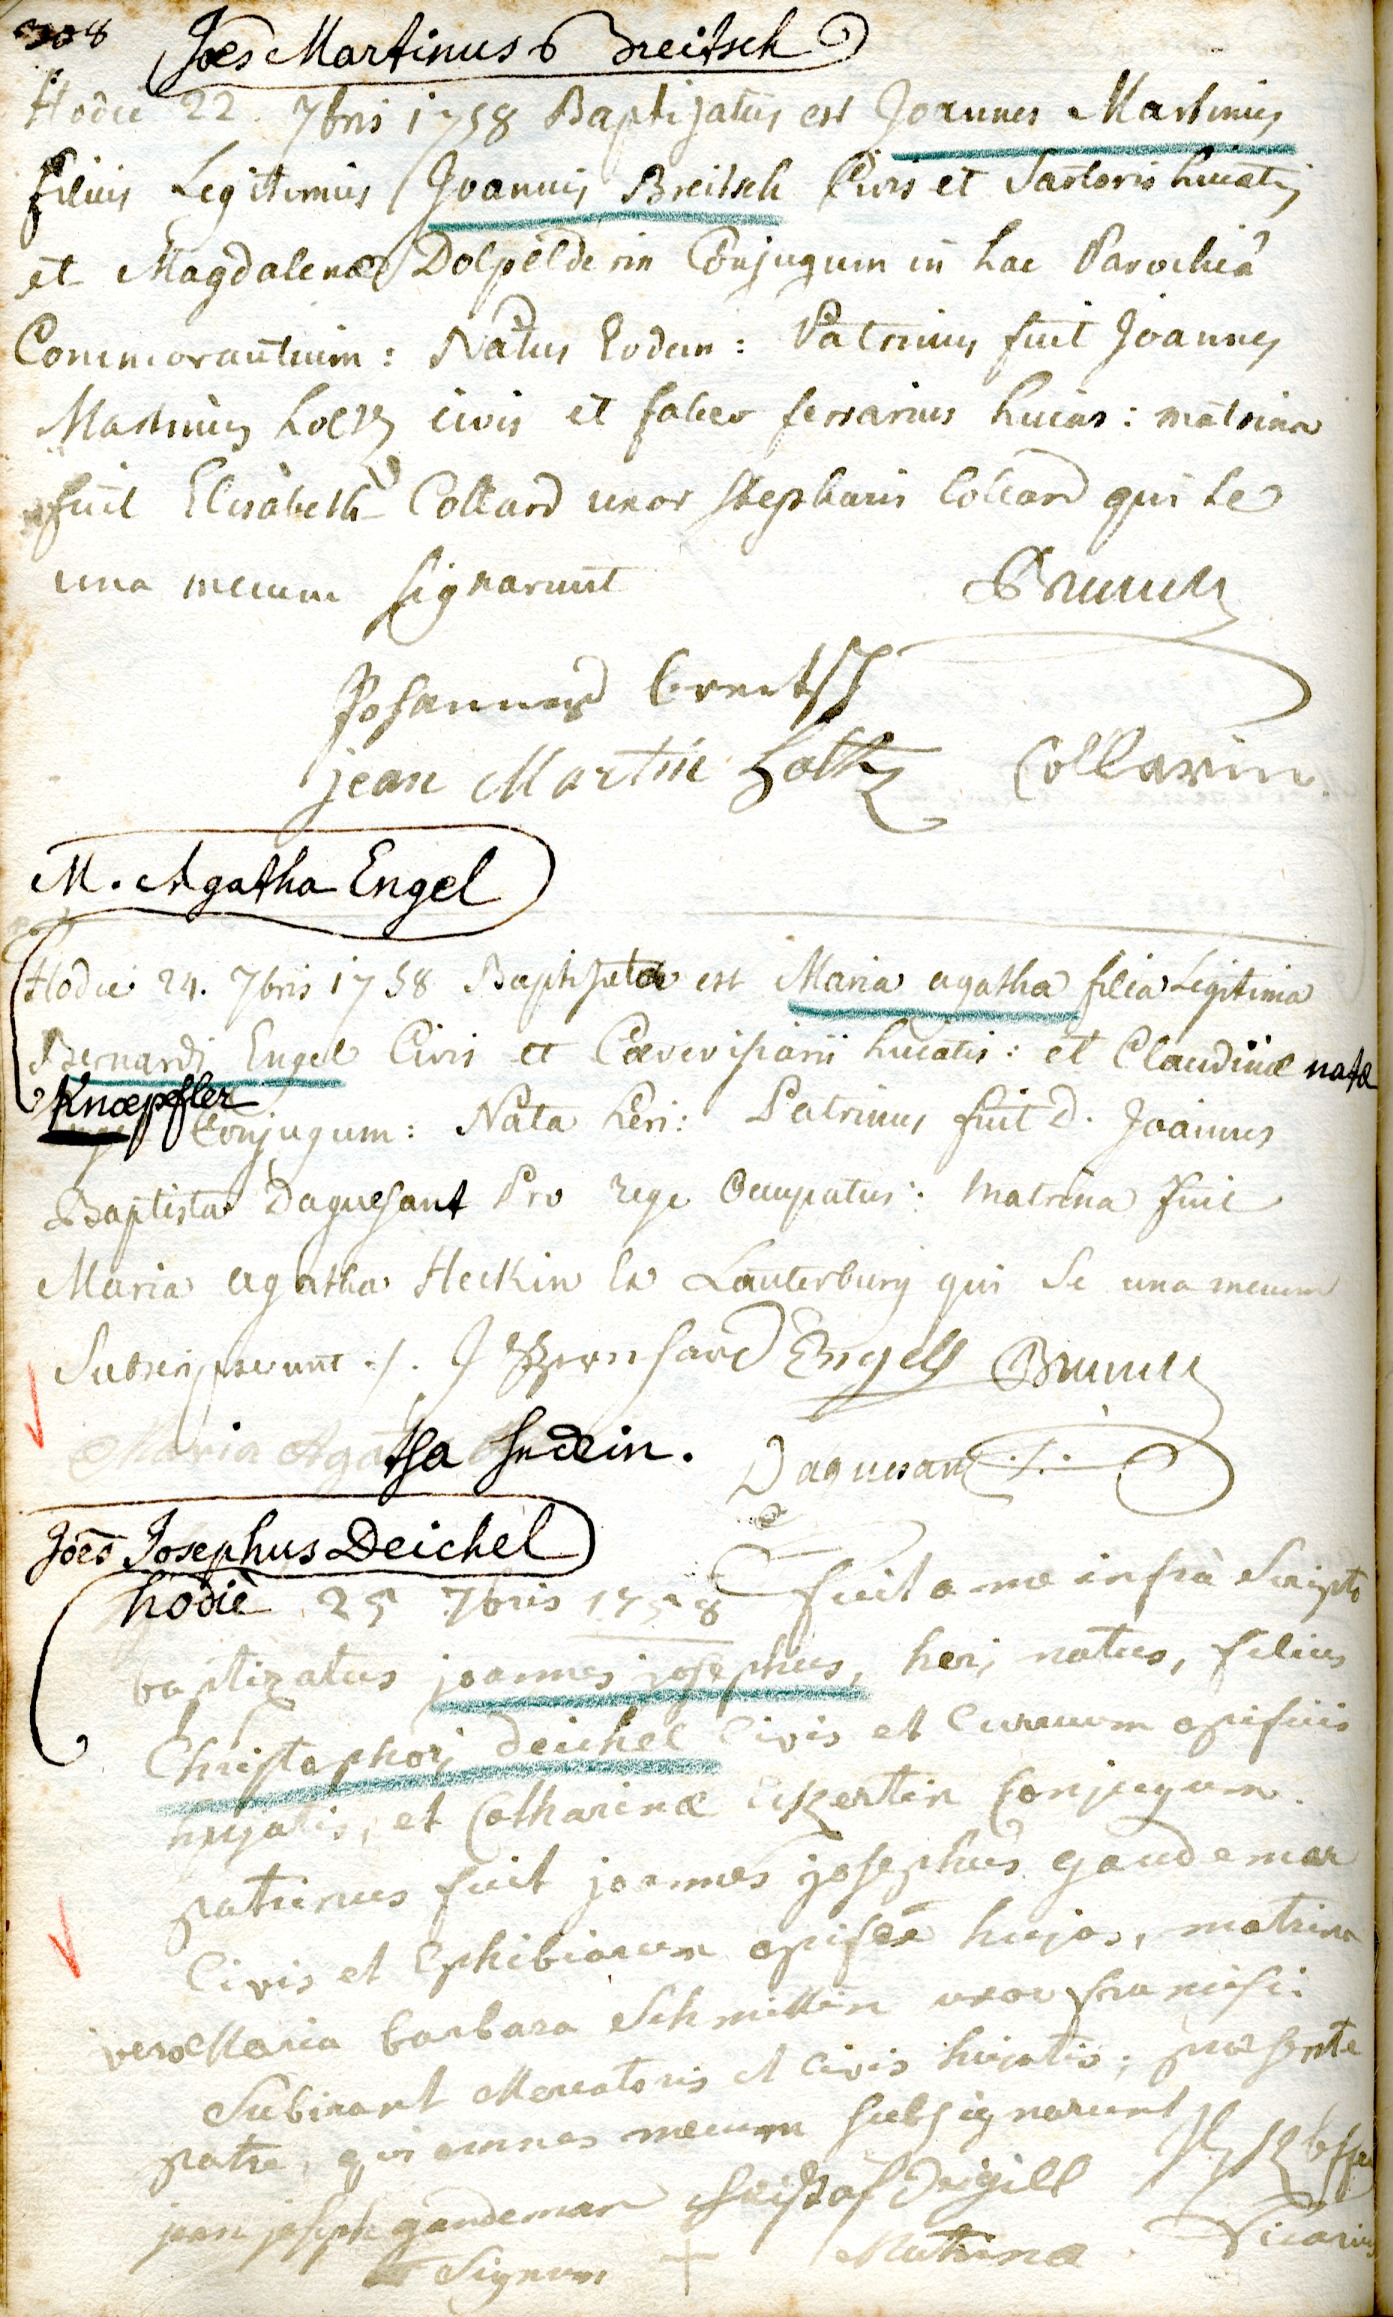 308
Joēs Martinus Breitsch
Hodie 22. 7bris 1758 Baptizatus est Joannes Martinus
filius Legitimus Joannis Breitsch Civis et Sartoris huiatis
et Magdalenæ Dolpelderin Conjugum in hac Parochiâ
Commorantium: Natus Eodem: Patrinus fuit Joannes
Martinus Holtz civis et faber ferrarius huias: matrina
fuit Elisabeth Collard uxor Stephani Collard qui se
una mecum signarunt Brunck
Johannes breitsch
jean Martin Holtz Collarin
M. Agatha Engel
Hodie 24. 7bris 1758 Baptizata est Maria agatha filia Legitima
Bernardi Engel Civis et Cerevisiarii huiatis: et Claudinæ natæ
Knœpfler Conjugum: Nata heri: Patrinus fuit d. Joannes
Baptista Daguesant Pro rege Occupatus: Matrina fuit
Maria agatha Heckin ex Lauterburg qui Se una mecum
Subscripserunt ./. J Bernhard Engell Brunck
Maria Agatha Daguesant ./.
Joēs Josephus Deichel
hodie 25 7bris 1758 fuit a me infrà Scripto
baptizatus joannes josephus, heri natus, filius
Christophori Deichel Civis et Curruum opificis
hujatis, et Catharinæ Conjugum.
patrinus fuit joannes josephus gaudemar
Civis et Ephibiorum opifex hujas, matrina
vero Maria barbara Schmittin uxor francisci
Subirant Mercatoris et Civis hujatis; præsente
patre, qui omnes mecum subsignarunt
jean joseph gaudemar
Signum + Matrinæ Vicarius